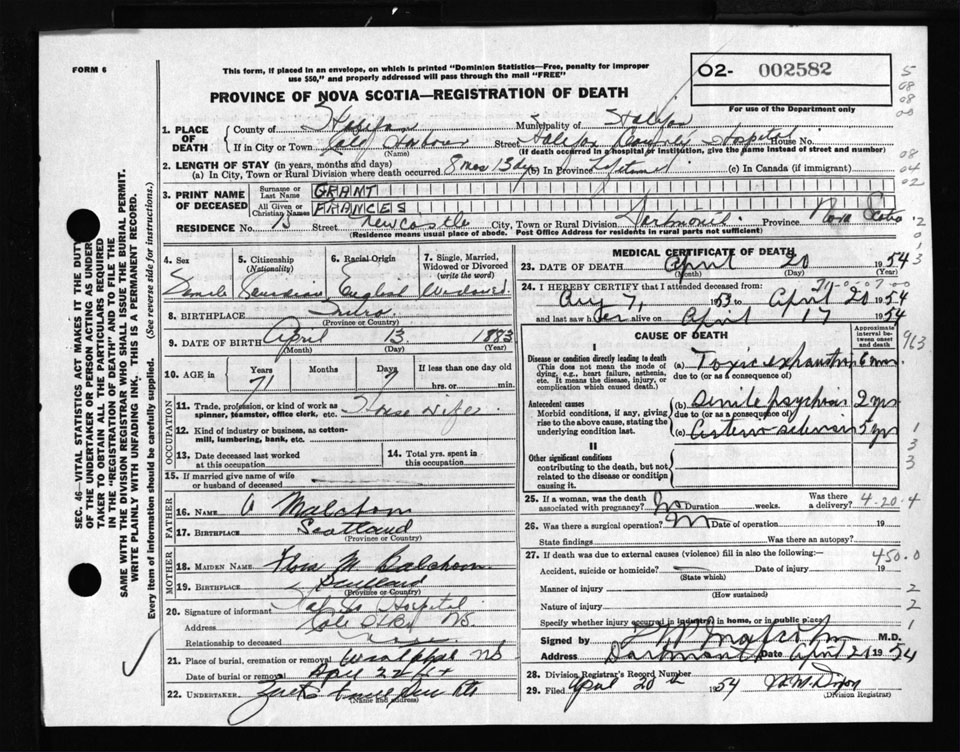 FORM 6
This form, if placed in an envelope, on which is printed "Dominion Statistics—Free, penalty for improper
use $50," and properly addressed will pass through the mail "FREE"
PROVINCE OF NOVA SCOTIA—REGISTRATION OF DEATH
02- 002582
For use of the Department only
1. PLACE OF DEATH
County of Halifax Municipality of Halifax
If in City or Town Cole Harbour Street Halifax County Hospital House No.
(Name) (If death occurred in a hospital or institution, give the name instead of street and number)
2. LENGTH OF STAY (in years, months and days)
(a) In City, Town or Rural Division where death occurred 8 mos 13 dys (b) In Province Lifetime (c) In Canada (if immigrant)
3. PRINT NAME OF DECEASED
Surname or Last Name GRANT
All Given or Christian Names FRANCES
RESIDENCE No. 75 Street Newcastle City, Town or Rural Division Dartmouth Province Nova Scotia
(Residence means usual place of abode. Post Office Address for residents in rural parts not sufficient)
4. Sex
Female
5. Citizenship
(Nationality)
Canadian
6. Racial Origin
English
7. Single, Married, Widowed or Divorced
(write the word)
Widowed
8. BIRTHPLACE Truro
(Province or Country)
9. DATE OF BIRTH April 13 1883
(Month) (Day) (Year)
10. AGE in
Years Months Days If less than one day
71 7 hrs. or min.
OCCUPATION
11. Trade, profession, or kind of work as spinner, teamster, office clerk, etc. House Wife
12. Kind of industry or business, as cotton-mill, lumbering, bank, etc.
13. Date deceased last worked at this occupation
14. Total yrs. spent in this occupation
15. If married give name of wife or husband of deceased
FATHER
16. NAME
17. BIRTHPLACE Scotland
(Province or Country)
MOTHER
18. MAIDEN NAME
19. BIRTHPLACE
(Province or Country)
20. Signature of informant Hospital
Address Cole N.S.
Relationship to deceased
21. Place of burial, cremation or removal NS
Date of burial or removal April 22
22. UNDERTAKER
(Name and address)
MEDICAL CERTIFICATE OF DEATH
23. DATE OF DEATH April 20 1954
(Month) (Day) (Year)
24. I HEREBY CERTIFY that I attended deceased from:
Aug 7, 1953 to April 20 1954
and last saw her alive on April 17 1954
CAUSE OF DEATH
Approximate interval between onset and death
I
Disease or condition directly leading to death
(This does not mean the mode of dying, e.g., heart failure, asthenia, etc. It means the disease, injury, or complication which caused death.)
(a) Toxic exhaustion 6 mos
due to (or as a consequence of)
Antecedent causes
Morbid conditions, if any, giving rise to the above cause, stating the underlying condition last.
(b) Senile psychosis 2 yrs
due to (or as a consequence of)
(c) Arteriosclerosis 5 yr
II
Other significant conditions
contributing to the death, but not related to the disease or condition causing it.
25. If a woman, was the death associated with pregnancy? No Duration weeks. Was there a delivery?
4-20.4
26. Was there a surgical operation? No Date of operation 19
State findings Was there an autopsy?
27. If death was due to external causes (violence) fill in also the following:—
450.0
Accident, suicide or homicide? Date of injury 19
(State which)
Manner of injury
(How sustained)
Nature of injury
Specify whether injury occurred in industry, in home, or in public place
Signed by M.D.
Address Dartmouth Date April 21 1954
28. Division Registrar's Record Number
29. Filed April 20th 1954
(Division Registrar)
SEC. 46—VITAL STATISTICS ACT MAKES IT THE DUTY
OF THE UNDERTAKER OR PERSON ACTING AS UNDER-
TAKER TO OBTAIN ALL THE PARTICULARS REQUIRED
IN THE "REGISTRATION OF DEATH" AND TO FILE THE
SAME WITH THE DIVISION REGISTRAR WHO SHALL ISSUE THE BURIAL PERMIT.
WRITE PLAINLY WITH UNFADING INK. THIS IS A PERMANENT RECORD.
Every item of information should be carefully supplied. (See reverse side for instructions.)